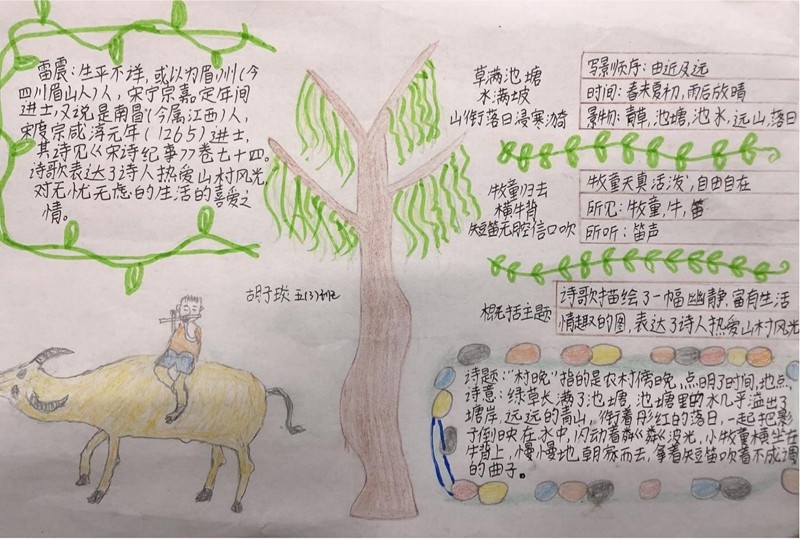 雷震：生平不详，或以为眉州(今
四川眉山人)人，宋宁宗嘉定年间
进士，又说是南昌(今属江西)人，
宋度宗咸淳元年(1265)进士，
其诗见《宋诗纪事》卷七十四。
诗歌表达了诗人热爱山村风光，
对无忧无虑的生活的喜爱之
情。
草满池塘
水满坡
山衔落日浸寒漪
写景顺序：由近及远
时间：春末夏初，雨后放晴
景物：青草，池塘，池水，远山，落日
牧童归去
横牛背
短笛无腔信口吹
牧童天真活泼，自由自在
所见：牧童，牛，笛
所听：笛声
胡子琰 五(3)班
概括主题
诗歌描绘了一幅幽静，富有生活
情趣的图，表达了诗人热爱山村风光
诗题："村晚"指的是农村傍晚，点明了时间，地点，
诗意：绿草长满了池塘，池塘里的水几乎溢出了
塘岸，远远的青山，衔着彤红的落日，一起把影
子倒映在水中，闪动着粼粼波光，小牧童横坐在
牛背上，慢慢地朝家而去，拿着短笛吹着不成调
的曲子。